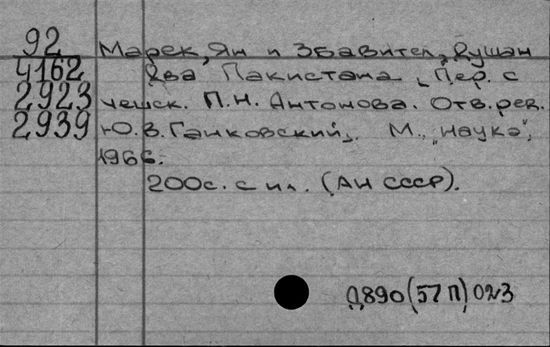 92 Марек, Ян и Збавител, Душан
4162 Два Пакистана. Пер. с
2923 чешск. П.Н. Антонова. Отв. ред.
2939 Ю.В. Ганковский. М., "Наука",
1966.
200с. с ил. (АН СССР).
Д890(57П)023